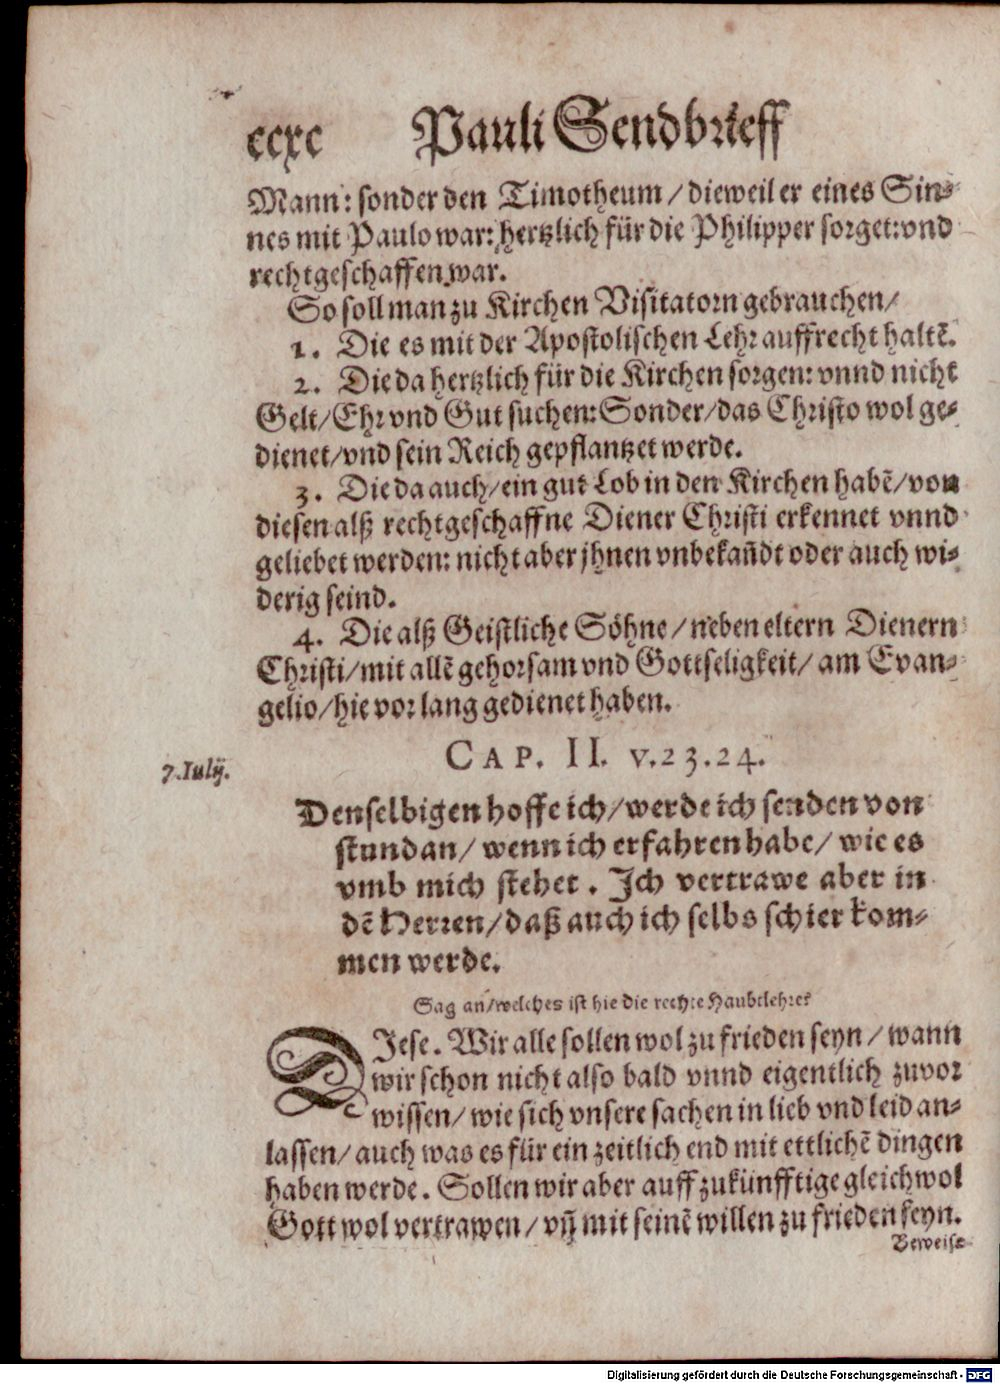 ccxc Pauli Sendbrieff
Mann: sonder den Timotheum / dieweil er eines Sin-
nes mit Paulo war: hertzlich für die Philipper sorget: vnd
rechtgeschaffen war.
So soll man zu Kirchen Visitatorn gebrauchen /
1. Die es mit der Apostolischen Lehr auffrecht haltẽ.
2. Die da hertzlich für die Kirchen sorgen: vnnd nicht
Gelt / Ehr vnd Gut suchen: Sonder / das Christo wol ge-
dienet / vnd sein Reich gepflantzet werde.
3. Die da auch / ein gut Lob in den Kirchen habẽ / von
diesen alß rechtgeschaffne Diener Christi erkennet vnnd
geliebet werden: nicht aber jhnen vnbekañdt oder auch wi-
derig seind.
4. Die alß Geistliche Söhne / neben eltern Dienern
Christi / mit allẽ gehorsam vnd Gottseligkeit / am Evan-
gelio / hie vor lang gedienet haben.
CAP. II. v.23.24.
7.Iulij.
Denselbigen hoffe ich / werde ich senden von
stund an / wenn ich erfahren habe / wie es
vmb mich stehet. Ich vertrawe aber in
dẽ Herren / daß auch ich selbs schier kom-
men werde.
Sag an / welches ist hie die rechte Haubtlehre?
DIese. Wir alle sollen wol zu frieden seyn / wann
wir schon nicht also bald vnnd eigentlich zuvor
wissen / wie sich vnsere sachen in lieb vnd leid an-
lassen / auch was es für ein zeitlich end mit ettlichẽ dingen
haben werde. Sollen wir aber auff zukünfftige gleichwol
Gott wol vertrawen / vñ mit seinẽ willen zu frieden seyn.
Beweise
Digitalisierung gefördert durch die Deutsche Forschungsgemeinschaft - DFG